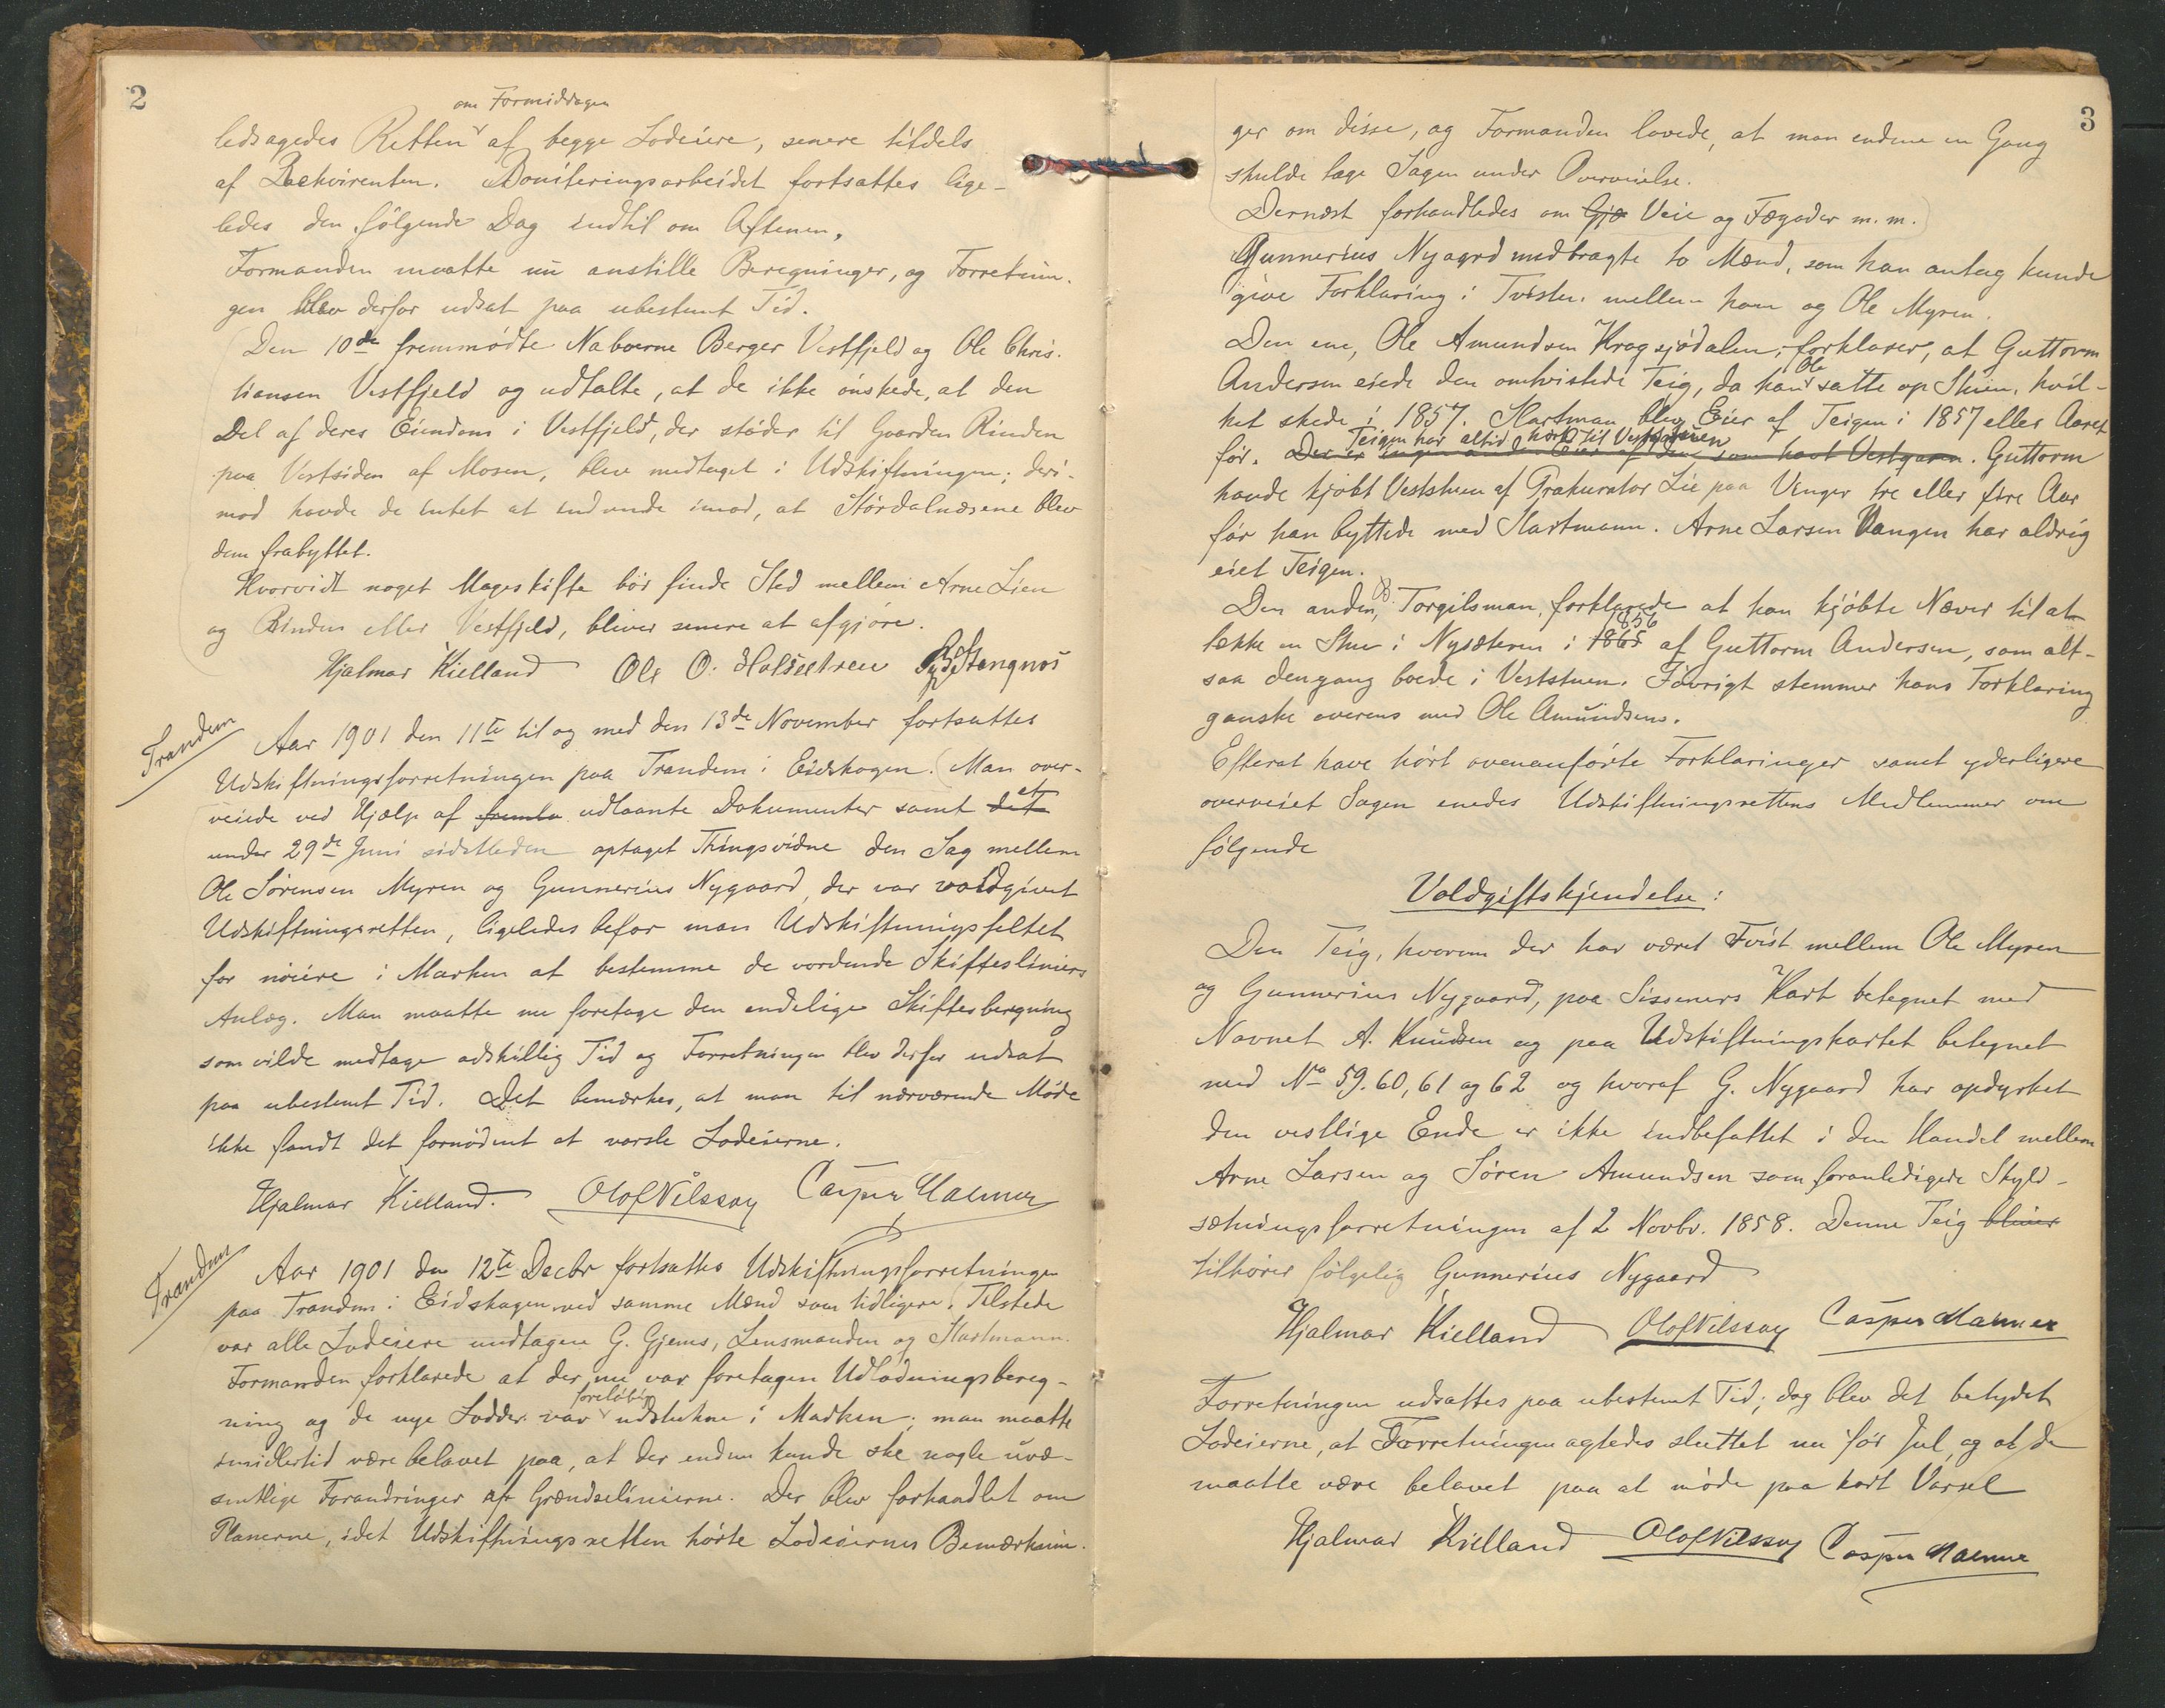 2
om Formiddagen
ledsagedes Retten af begge Lodeiere, senere tildels
af Rekvirenten. Boniteringsarbeidet fortsattes lige-
ledes den følgende Dag indtil om Aftenen.
Formanden maatte nu anstille Beregninger, og Forretnin-
gen blev derfor udsat paa ubestemt Tid.
Den 10de fremmødte Naboerne Berger Vestfjeld og Ole Chris-
tiansen Vestfjeld og udtalte, at de ikke ønskede, at den
Del af deres Eiendom i Vestfjeld, der støder til Gaarden Rinden
paa Vestsiden af Mosen, blev medtaget i Udskiftningen; deri-
mod havde de intet at indvende imod, at Stórdalnæsene blev
dem frabyttet.
Hvorvidt noget Mageskifte bør finde Sted mellem Arne Lien
og Rinden eller Vestfjeld, bliver senere at afgjøre.
Hjalmar Kielland Ole O. Holsætren
Tranden
Aar 1901 den 11te til og med den 13de November fortsattes
Udskiftningsforretningen paa Trandem i Eidskogen. Man over-
veiede ved Hjælp af fremla udlaante Dokumenter samt det et
under 29de Juni sidstleden optaget Thingsvidne den Sag mellem
Ole Sørensen Myren og Gunnerius Nygaard, der var voldgivet
Udskiftningsretten, ligeledes befor man Udskiftningsfeltet
for nøiere i Marken at bestemme de vordende Skifteslinier
Anlæg. Man maatte nu foretage den endelige Skiftesberegning
som vilde medtage adskillig Tid og Forretningen blev derfor udsat
paa ubestemt Tid. Det bemærkes, at man til nærværende Møde
ikke fandt det fornødent at varsle Lodeierne.
Hjalmar Kielland. Olof Nilsson Casper Maemer
Trandem
Aar 1901 den 12te Decbr fortsattes Udskiftningsforretningen
paa Trandem i Eidskogen ved samme Mænd som tidligere. Tilstede
var alle Lodeiere undtagen G. Gjems, Lensmanden og Hartmann.
Formanden forklarede at der nu var foretagen Udlodningsbereg-
ning og de nye Lodder var foreløbig udstukne i Marken; man maatte
imidlertid være belavet paa, at der endnu kunde ske nogle uvæ-
sentlige Forandringer af Grændselinierne. Der blev forhandlet om
Planerne, idet Udskiftningsretten hørte Lodeiernes Bemærknin-
3
ger om disse, og Formanden lovede, at man endnu en Gang
skulde tage Sagen under Overveielse.
Dernæst forhandledes om Gjø Veie og Fægader m. m.
Gunnerius Nyaard medbragte to Mænd, som han antog kunde
give Forklaring i Tvisten mellem ham og Ole Myren.
Den ene, Ole Amundsen Kragsjødalen, forklarer, at Guttorm
Andersen eiede den omtvistede Teig, da han Ole satte op Stuen, hvil-
ket skede i 1857. Hartman blev Eier af Teigen i 1857 eller Aaret
Teigen har altid hørt til Vestgaren
før. Der er ingen anden Eier af den som havt Vestgaren. Guttorm
havde kjøbt Veststuen af Prokurator Lie paa Vinger tre eller fire Aar
før han byttede med Hartmann. Arne Larsen Vangen har aldrig
eiet Teigen.
Den anden, B. Torgilsman, forklarede at han kjøbte Næver til at
tække en Stue i Nysæteren i 1865 1856 af Guttorm Andersen, som alt-
saa dengang boede i Veststuen. Føvrigt stemmer hans Forklaring
ganske overens med Ole Amundsens.
Efterat have hørt ovenanførte Forklaringer samt yderligere
overveiet Sagen enedes Udskiftningsrettens Medlemmer om
følgende
Voldgiftskjendelse:
Den Teig, hvorom der har været Tvist mellem Ole Myren
og Gunnerius Nygaard, paa Sisseners Kart betegnet med
Navnet A. Knudsen og paa Udskiftningskartet betegnet
med No 59. 60, 61 og 62 og hvoraf G. Nygaard har opdyrket
den vestlige Ende er ikke indbefattet i den Handel mellem
Arne Larsen og Søren Amundsen som foranledigede Skyld-
sætningsforretningen af 2 Novbr. 1858. Denne Teig bliver
tilhører følgelig Gunnerius Nygaard
Hjalmar Kielland Olof Nilsson Casper Maemer
Forretningen udsattes paa ubestemt Tid; dog blev det betydet
Lodeierne, at Forretningen agtedes sluttet nu før Jul, og at de
maatte være belavet paa at møde paa kort Varsel
Hjalmar Kielland Olof Nilsson Casper Maemer